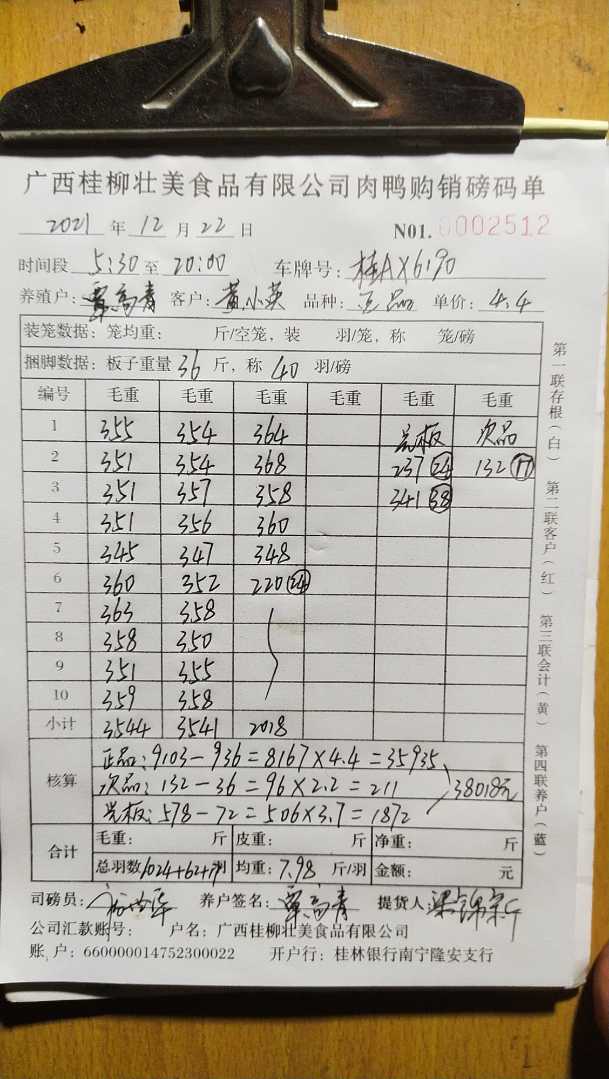 广西桂柳壮美食品有限公司肉鸭购销磅码单
2021 年 12 月 22 日 N01. 0002512
时间段 5:30 至 20:00 车牌号: 桂AX6190
养殖户: 覃高青 客户: 黄小英 品种: 正品 单价: 4.4
装笼数据: 笼均重: 斤/空笼, 装 羽/笼, 称 笼/磅
捆脚数据: 板子重量 36 斤, 称 40 羽/磅
编号 毛重 毛重 毛重 毛重 毛重 毛重
1 355 354 364 光板 次品
2 351 354 368 237 24 132 17
3 351 357 358 341 38
4 351 356 360
5 345 347 348
6 360 352 220 24
7 363 358
8 358 350
9 351 355
10 359 358
小计 3544 3541 2018
核算
正品: 9103-936=8167×4.4=35935
次品: 132-36=96×2.2=211 38018元
光板: 578-72=506×3.7=1872
合计
毛重: 斤 皮重: 斤 净重: 斤
总羽数 1024+62+17 羽 均重: 7.98 斤/羽 金额: 元
司磅员: 养户签名: 覃高青 提货人:
公司汇款账号: 户名: 广西桂柳壮美食品有限公司
账户: 660000014752300022 开户行: 桂林银行南宁隆安支行
第一联存根(白)
第二联客户(红)
第三联会计(黄)
第四联养户(蓝)